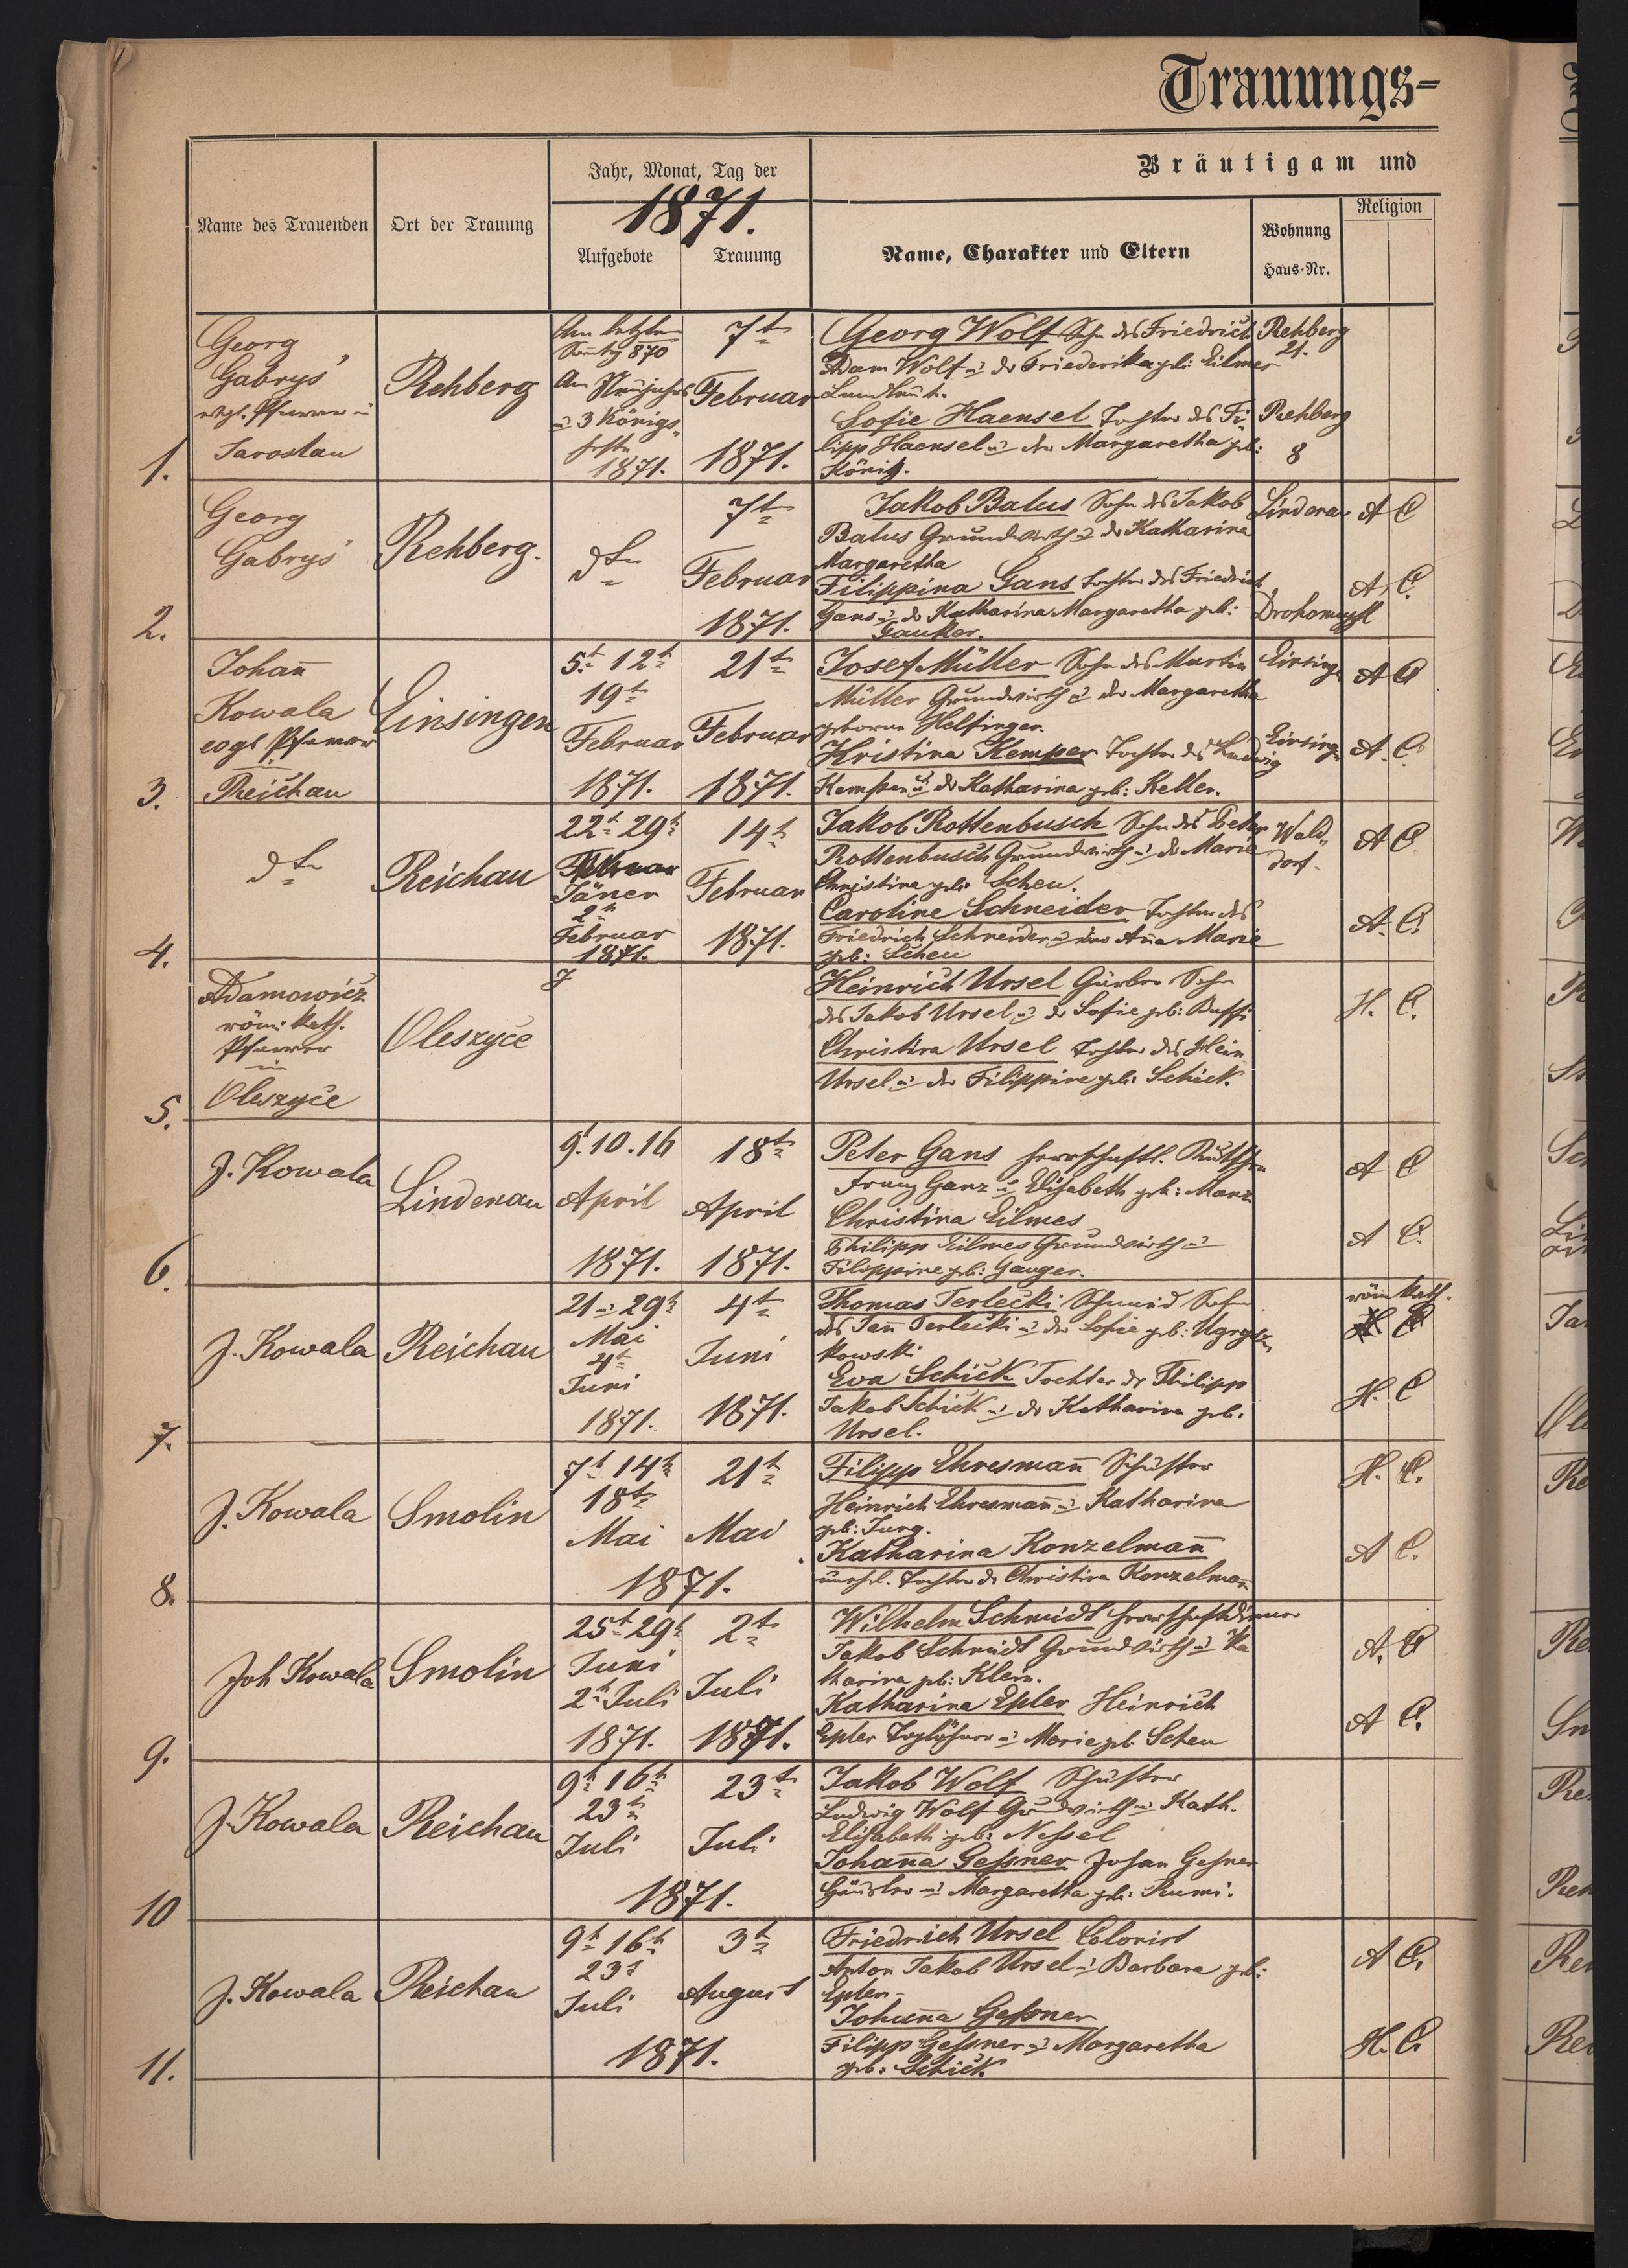 Trauungs-
Bräutigam und
Name des Trauenden
Ort der Trauung
Jahr, Monat, Tag der
1871.
Aufgebote
Trauung
Name, Charakter und Eltern
Wohnung
Haus-Nr.
Religion
1.
Georg
Gabrys'
Jaroslau
Rehberg
Am letzten
870
Am Neujahrs
3 Königs
1871.
7t
Februar
1871.
Georg Wolf Sohn des Friedrich
Adam Wolf u der Friederika geb: Eilmes
Sofie Haensel Tochter des Fi
lipp Haensel u der Margaretha geb:
König.
Rehberg
21.
Rehberg
8
2.
Georg
Gabrys'
Rehberg.
dto
7t
Februar
1871.
Jakob Balus Sohn des Jakob
Balus Grundwirth u der Katharina
Margaretha
Filippina Gans Tochter des Friedrich
Gans u der Katharina Margaretha geb:
Gauker.
Lindenau
Drohomysl
A C
A. C.
3.
Johañ
Kowala
evgl Pfarrer
in
Reichau
Einsingen
5t 12t
19t
Februar
1871.
21t
Februar
1871.
Josef Müller Sohn des Martin
Müller Grundwirth u der Margaretha
geborne Helfinger.
Kristina Kemper Tochter des Ludwig
Kemper u der Katharina geb: Keller.
Einsingen
Einsingen
A C
A. C.
4.
dto
Reichau
22t 29t
Februar
Jäner
2t
Februar
1871.
14t
Februar
1871.
Jakob Rottenbusch Sohn des Peter
Rottenbusch Grundwirth u der Marie
Christina geb: Scheu.
Caroline Schneider Tochter des
Friedrich Schneider u der Aña Marie
geb: Scheu
Wald
dorf.
A C
A. C.
5.
Adamowicz
röm: kath.
Pfarrer
in
Oleszyce
Oleszyce
Heinrich Ursel Gärber Sohn
des Jakob Ursel u der Sofie geb:
Christina Ursel Tochter des Hein
Ursel u der Filippine geb: Schick.
H. C.
6.
J. Kowala
Lindenau
9t 10. 16
April
1871.
18t
April
1871.
Peter Gans herrschaftl.
Franz Ganz u Elisabeth geb: Manz
Christina Eilmes
Philipp Eilmes Grundwirth u
Filippine geb: Gauger.
A C
A C.
7.
J. Kowala
Reichau
21 u 29t
Mai
4t
Juni
1871.
4t
Juni
1871.
Thomas Terlecki Schmid Sohn
des Jañ Terlecki u der Sofie geb: Ugrysz
kowski
Eva Schick Tochter der Philipp
Jakob Schick u der Katharina geb.
Ursel.
röm kath.
H. C
8.
J. Kowala
Smolin
7t 14t
18t
Mai
21t
Mai
1871.
Filipp Ehresmañ Schuster
Heinrich Ehresmañ u Katharina
geb: Jung.
Katharina Konzelmañ
unehl. Tochter der Christina Konzelmañ
H. C.
A C.
9.
Joh Kowala
Smolin
25t 29t
Juni
2t Juli
1871.
2t
Juli
1871.
Wilhelm Schmidt Herrschaftsdiener
Jakob Schmidt Grundwirth u Ka
tharina geb: Klein.
Katharina Epler Heinrich
Epler Taglöhner u Marie geb Scheu
A. C
A C.
10
J. Kowala
Reichau
9t 16t
23t
Juli
23t
Juli
1871.
Jakob Wolf Schuster
Ludwig Wolf Grundwirth u Kath.
Elisabeth geb: Nessel
Johaña Gessner Johan Gesner
Gärber u Margaretha geb: Rumi.
11.
J. Kowala
Reichau
9t 16t
23t
Juli
3t
August
1871.
Friedrich Ursel Colonist
Anton Jakob Ursel u Barbara geb:
Epler
Johaña Gessner
Filipp Gessner u Margaretha
geb: Schick
A C.
H. C.